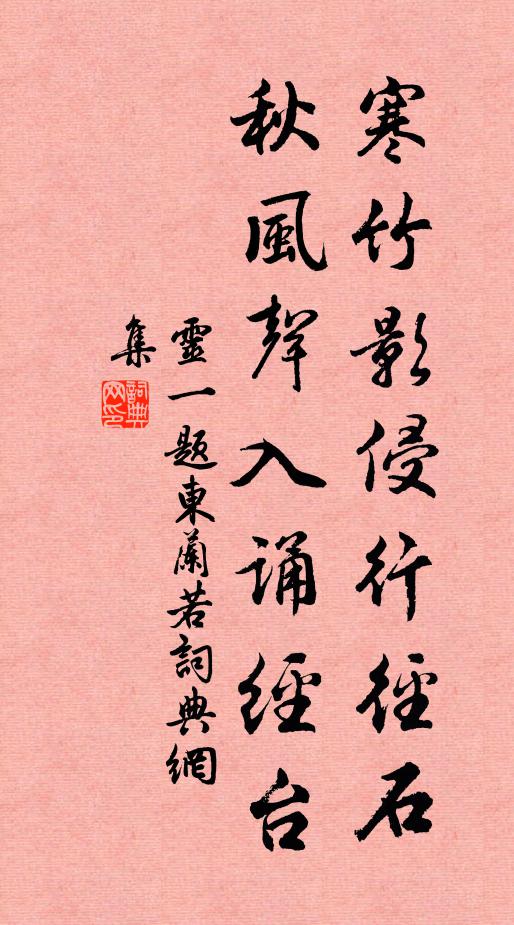 寒竹影侵行徑石
秋風聲入誦經台
靈一題東蘭若詞典網
集
詞典網印